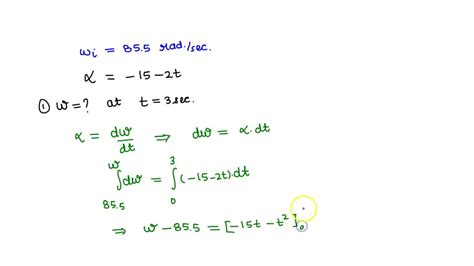 ωi = 85.5 rad./sec.
α = -15-2t
① ω=? at t = 3sec.
α = dω/dt ⇒ dω = α.dt
∫_{85.5}^{ω} dω = ∫_{0}^{3} (-15-2t).dt
⇒ ω-85.5 = [-15t - t²]_0